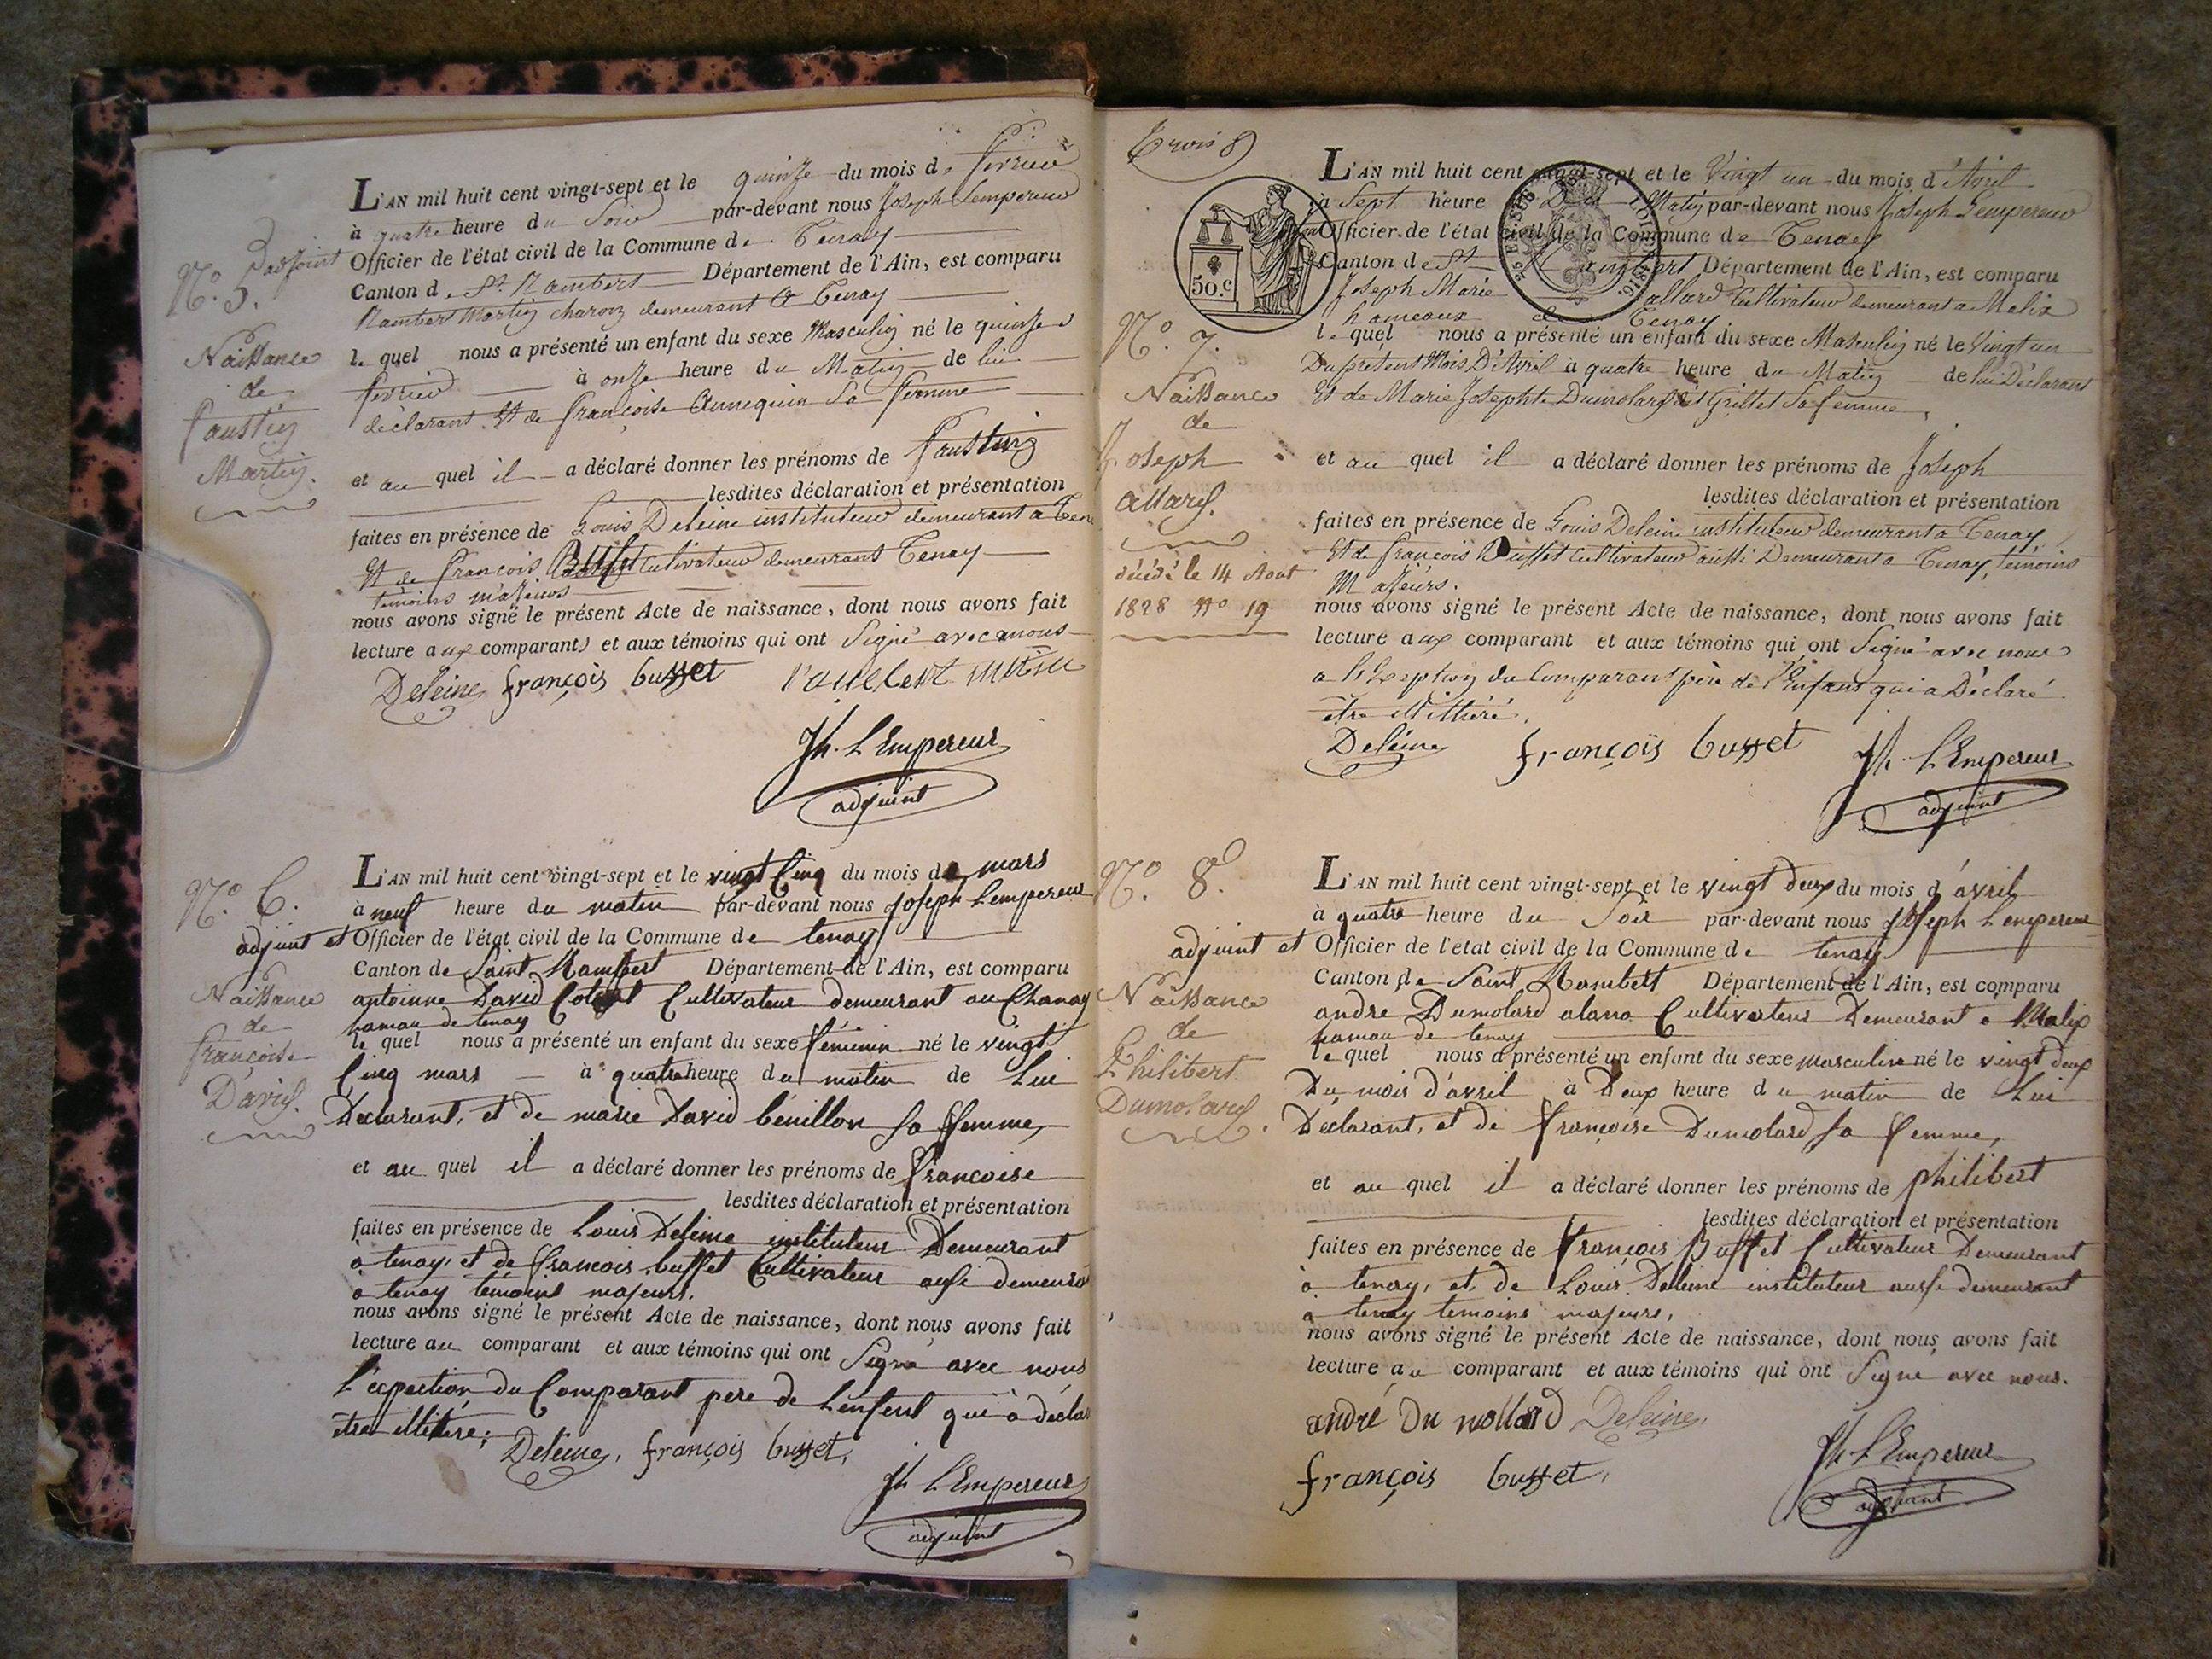 L'AN mil huit cent vingt-sept et le quinze du mois de fevrier
à quatre heure du Soir par-devant nous Joseph Lempereur
adjoint Officier de l'état civil de la Commune de Tenay
Canton de St. Rambert Département de l'Ain, est comparu
Rambert Martin charon demeurant a Tenay
le quel nous a présenté un enfant du sexe Masculin né le quinze
fevrier à onze heure du Matin de lui
déclarant Et de françoise Annequin Sa femme
et au quel il a déclaré donner les prénoms de faustin
lesdites déclaration et présentation
faites en présence de Louis Deleine instituteur demeurant a Tenay
Et de francois Buffet Cultivateur demeurant Tenay
temoins majeurs
nous avons signé le présent Acte de naissance, dont nous avons fait
lecture aux comparants et aux témoins qui ont Signé avec nous
Deleine françois buffet
Jh. L'Empereur
adjoint
N.o 5.
Naissance
de
faustin
Martin.
L'AN mil huit cent vingt-sept et le vingt Cinq du mois de mars
à neuf heure du matin par-devant nous Joseph Lempereur
adjoint et Officier de l'état civil de la Commune de tenay
Canton de Saint Rambert Département de l'Ain, est comparu
antoinne David Cultivateur demeurant au Chanay
hamau de tenay
le quel nous a présenté un enfant du sexe féminin né le vingt
Cinq mars à quatre heure du matin de Lui
Déclarant, et de marie David bénillon sa femme,
et au quel il a déclaré donner les prénoms de francoise
lesdites déclaration et présentation
faites en présence de Louis Deleine instituteur Demeurant
a tenay, et de francois buffet Cultivateur aussi demeurã
a tenay temoins majeurs.
nous avons signé le présent Acte de naissance, dont nous avons fait
lecture au comparant et aux témoins qui ont Signé avec nous
L'expection du Comparant pere de Lenfent qui a déclar
être illitéré;
Deleine, françois buffet,
Jh L'Empereur
adjoint
N.o 6.
Naissance
de
françoise
David.
Trois
50.c
L'AN mil huit cent vingt-sept et le Vingt un du mois d'Avril
à Sept heure Du Matin par-devant nous Joseph Lempereur
Officier de l'état civil de la Commune de Tenay
Canton de St Rambert Département de l'Ain, est comparu
Joseph Marie allard Cultivateur demeurant a Malix
hameaux de Tenay
le quel nous a présenté un enfant du sexe Masculin né le Vingt un
Du présent Mois D'Avril à quatre heure du Matin de lui Déclarant
Et de Marie Josephte Dumolard dit Grillet Sa femme,
et au quel il a déclaré donner les prénoms de Joseph
lesdites déclaration et présentation
faites en présence de Louis Deleine instituteur demeurant a Tenay
Et de françois Buffet Cultivateur aussi Demeurant a Tenay, témoins
Majeurs.
nous avons signé le présent Acte de naissance, dont nous avons fait
lecture aux comparant et aux témoins qui ont Signé avec nous
a l'Exeption du Comparant père de l'Enfant qui a Déclaré
etre illitéré.
Deleine françois buffet Jh. L'Empereur
adjoint
N.o 7.
Naissance
de
Joseph
allard.
décédé le 14 Aout
1828 No 19
L'AN mil huit cent vingt-sept et le vingt deux du mois d'avril
à quatre heure du Soir par-devant nous Joseph Lempereur
adjoint et Officier de l'état civil de la Commune de tenay
Canton de Saint Rambert Département de l'Ain, est comparu
andre Dumolard Cultivateur Demeurant a Malix
hamau de tenay
le quel nous a présenté un enfant du sexe masculin né le vingt deux
Du mois d'avril à Deux heure du matin de Lui
Déclarant, et de françoise Dumolard sa femme,
et au quel il a déclaré donner les prénoms de philibert
lesdites déclaration et présentation
faites en présence de françois Buffet Cultivateur Demeurant
à tenay, et de Louis Deleine instituteur aussi demeurant
a tenay temoins majeurs,
nous avons signé le présent Acte de naissance, dont nous avons fait
lecture au comparant et aux témoins qui ont Signé avec nous.
andré Du mollard Deleine,
françois buffet,
Jh. L'Empereur
adjoint
N.o 8.
Naissance
de
Philibert
Dumolard.